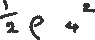 ½ ρ 4²